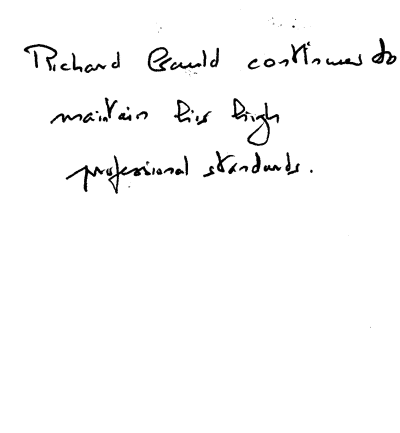 Richard Gauld continues to
maintain his high
professional standards.